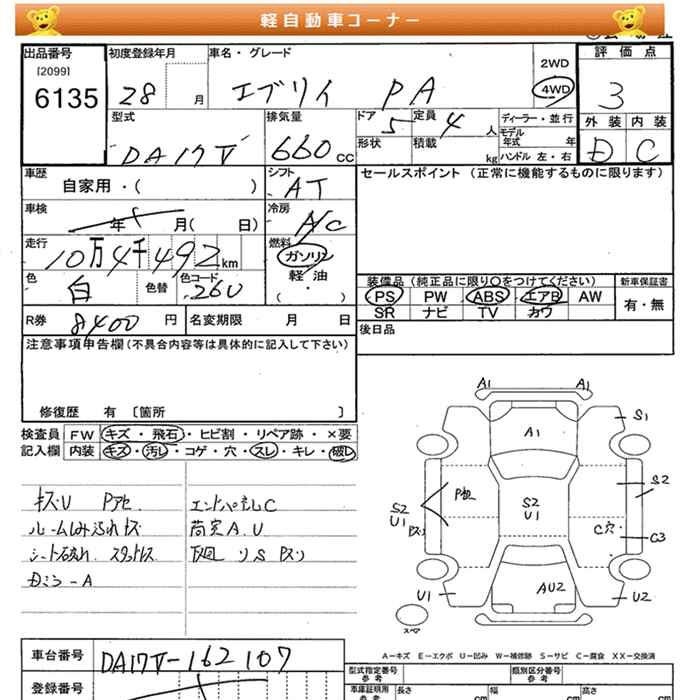 軽自動車コーナー
出品番号 初度登録年月 車名・グレード 評価点
[2099]
6135 28 月 エブリイ PA 2WD 4WD 3
型式 排気量 ドア 定員 ディーラー・並行 外装 内装
DA17V 660 cc 5 4 人 モデル年式 年 D C
形状 積載 kg ハンドル 左・右
車歴 シフト セールスポイント (正常に機能するものに限ります)
自家用・( ) AT
車検 冷房
年 月( 日) A/C
走行 燃料
10万4千492km ガソリン
軽油
( ・ )
色 色替 色コード
白 260
装備品 (純正品に限り○をつけてください) 新車保証書
PS PW ABS エアB AW 有・無
SR ナビ TV カワ
R券 8400 円 名変期限 月 日 後日品
注意事項申告欄(不具合内容等は具体的に記入して下さい)
修復歴 有 〔箇所 〕
検査員 FW キズ・飛石・ヒビ割・リペア跡・×要
記入欄 内装 キズ・汚れ・コゲ・穴・スレ・キレ・破れ
キズU Pアセ エンドパネルC
ルームしみ汚れキズ 荷室A.U
シート破れ 下廻り S
Dミラ-A
A1 A1
A1 S1
S2
U1
S2
U1
S2
C穴 C3
AU2
U1 U2
スペア
A－キズ E－エクボ U－凹み W－補修跡 S－サビ C－腐食 XX－交換済
車台番号 DA17V-162107
登録番号
型式指定番号 参考 類別区分番号 参考
車庫証明用 参考 長さ cm 幅 cm 高さ cm